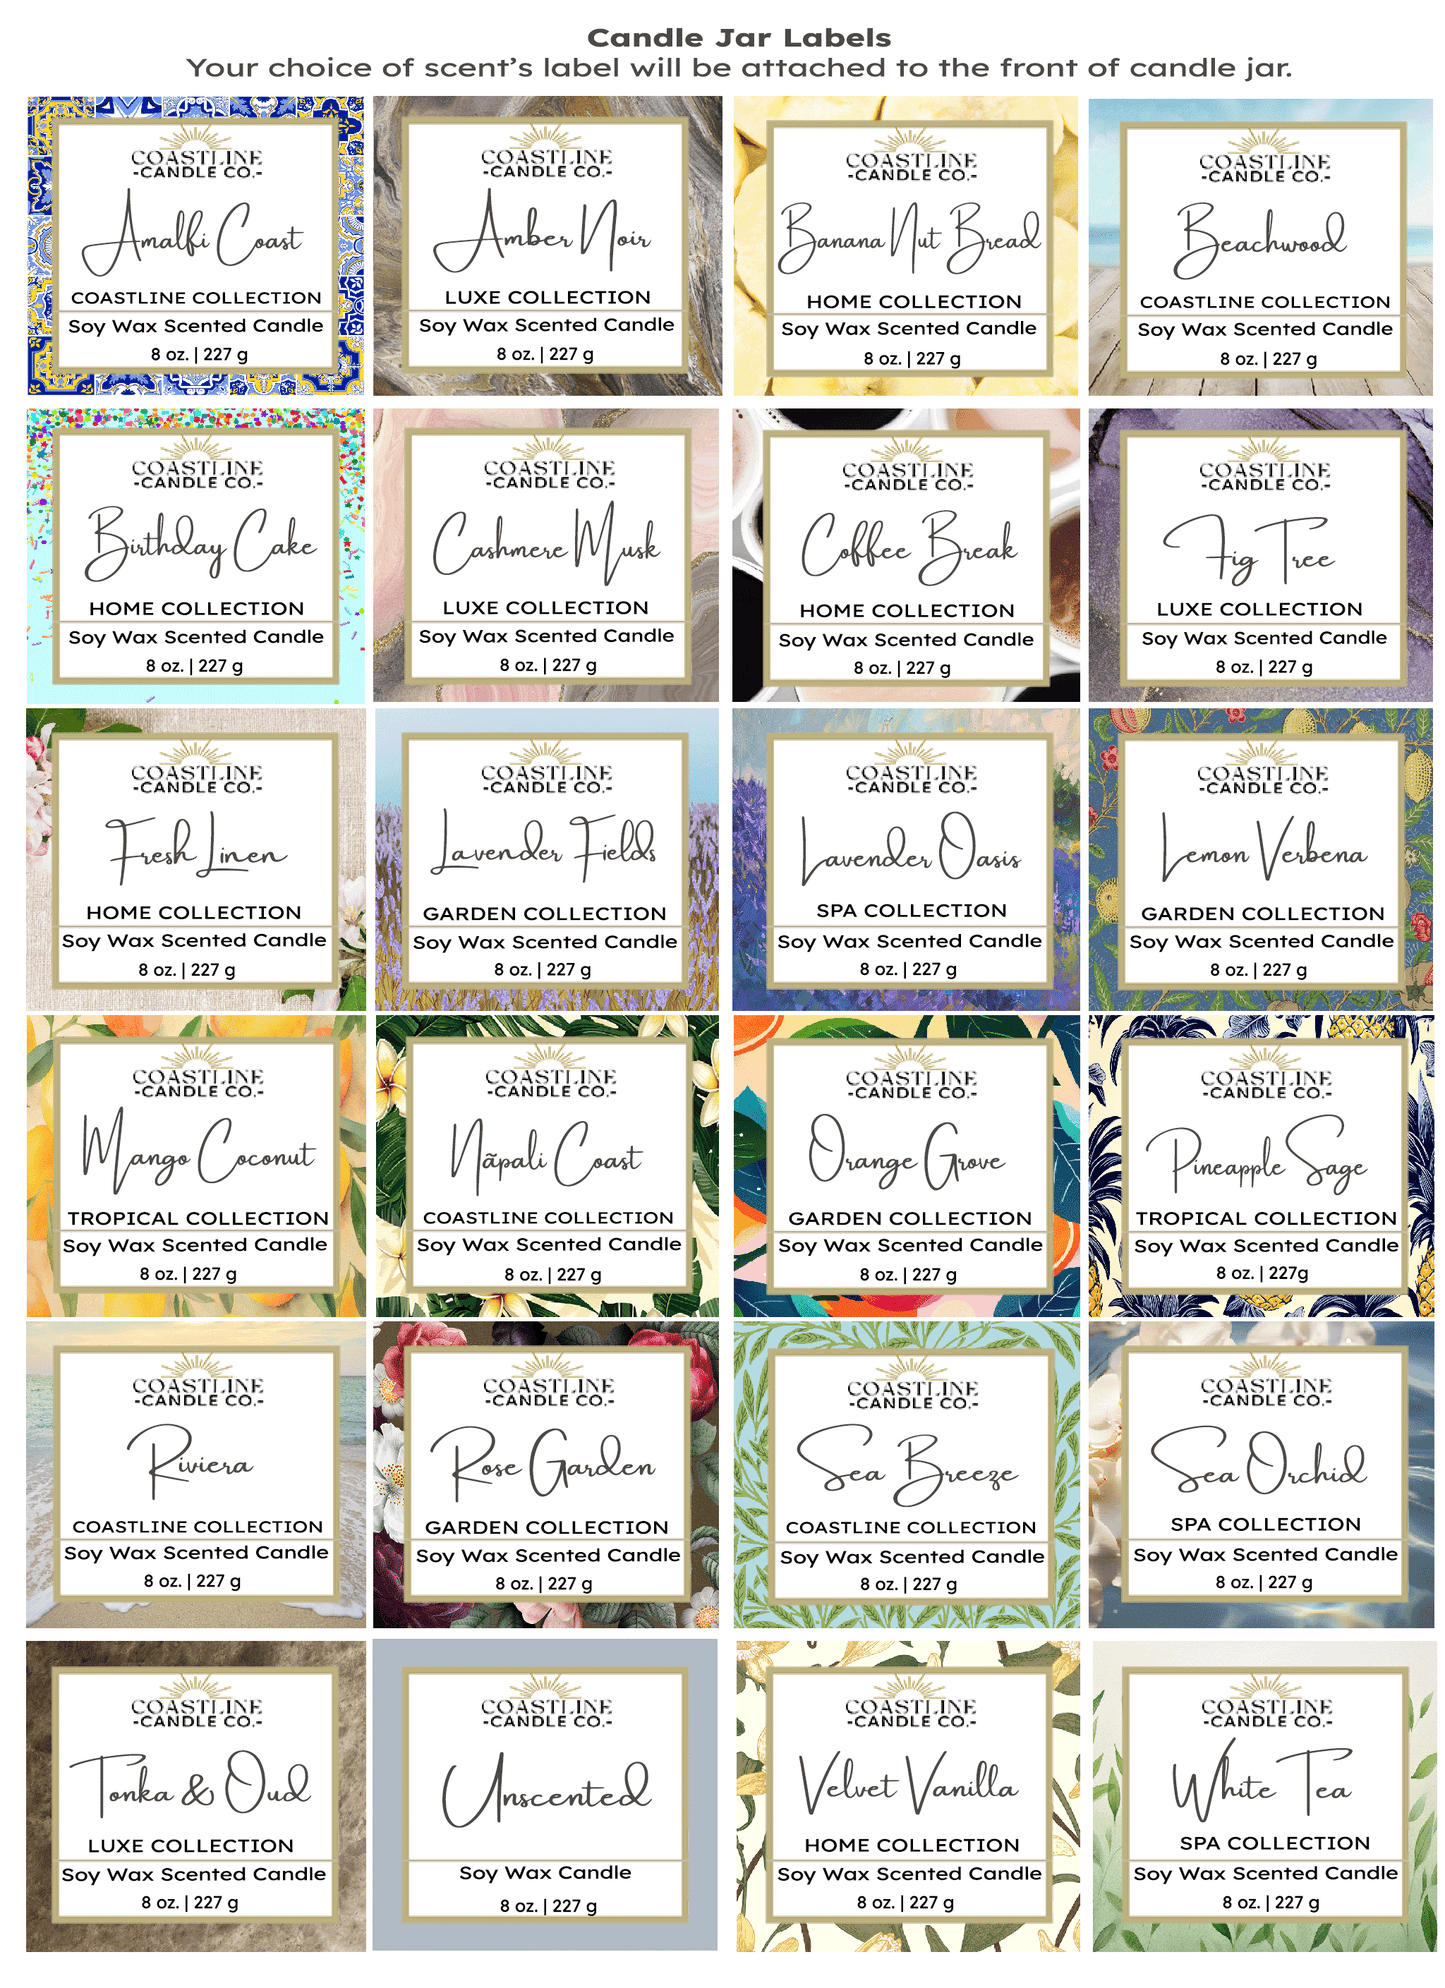 Candle Jar Labels
Your choice of scent's label will be attached to the front of candle jar.
COASTLINE
-CANDLE CO.-
Amalfi Coast
COASTLINE COLLECTION
Soy Wax Scented Candle
8 oz. | 227 g
COASTLINE
-CANDLE CO.-
Amber Noir
LUXE COLLECTION
Soy Wax Scented Candle
8 oz. | 227 g
COASTLINE
-CANDLE CO.-
Banana Nut Bread
HOME COLLECTION
Soy Wax Scented Candle
8 oz. | 227 g
COASTLINE
-CANDLE CO.-
Beachwood
COASTLINE COLLECTION
Soy Wax Scented Candle
8 oz. | 227 g
COASTLINE
-CANDLE CO.-
Birthday Cake
HOME COLLECTION
Soy Wax Scented Candle
8 oz. | 227 g
COASTLINE
-CANDLE CO.-
Cashmere Musk
LUXE COLLECTION
Soy Wax Scented Candle
8 oz. | 227 g
COASTLINE
-CANDLE CO.-
Coffee Break
HOME COLLECTION
Soy Wax Scented Candle
8 oz. | 227 g
COASTLINE
-CANDLE CO.-
Fig Tree
LUXE COLLECTION
Soy Wax Scented Candle
8 oz. | 227 g
COASTLINE
-CANDLE CO.-
Fresh Linen
HOME COLLECTION
Soy Wax Scented Candle
8 oz. | 227 g
COASTLINE
-CANDLE CO.-
Lavender Fields
GARDEN COLLECTION
Soy Wax Scented Candle
8 oz. | 227 g
COASTLINE
-CANDLE CO.-
Lavender Oasis
SPA COLLECTION
Soy Wax Scented Candle
8 oz. | 227 g
COASTLINE
-CANDLE CO.-
Lemon Verbena
GARDEN COLLECTION
Soy Wax Scented Candle
8 oz. | 227 g
COASTLINE
-CANDLE CO.-
Mango Coconut
TROPICAL COLLECTION
Soy Wax Scented Candle
8 oz. | 227 g
COASTLINE
-CANDLE CO.-
Nãpali Coast
COASTLINE COLLECTION
Soy Wax Scented Candle
8 oz. | 227 g
COASTLINE
-CANDLE CO.-
Orange Grove
GARDEN COLLECTION
Soy Wax Scented Candle
8 oz. | 227 g
COASTLINE
-CANDLE CO.-
Pineapple Sage
TROPICAL COLLECTION
Soy Wax Scented Candle
8 oz. | 227g
COASTLINE
-CANDLE CO.-
Riviera
COASTLINE COLLECTION
Soy Wax Scented Candle
8 oz. | 227 g
COASTLINE
-CANDLE CO.-
Rose Garden
GARDEN COLLECTION
Soy Wax Scented Candle
8 oz. | 227 g
COASTLINE
-CANDLE CO.-
Sea Breeze
COASTLINE COLLECTION
Soy Wax Scented Candle
8 oz. | 227 g
COASTLINE
-CANDLE CO.-
Sea Orchid
SPA COLLECTION
Soy Wax Scented Candle
8 oz. | 227 g
COASTLINE
-CANDLE CO.-
Tonka & Oud
LUXE COLLECTION
Soy Wax Scented Candle
8 oz. | 227 g
COASTLINE
-CANDLE CO.-
Unscented
Soy Wax Candle
8 oz. | 227 g
COASTLINE
-CANDLE CO.-
Velvet Vanilla
HOME COLLECTION
Soy Wax Scented Candle
8 oz. | 227 g
COASTLINE
-CANDLE CO.-
White Tea
SPA COLLECTION
Soy Wax Scented Candle
8 oz. | 227 g